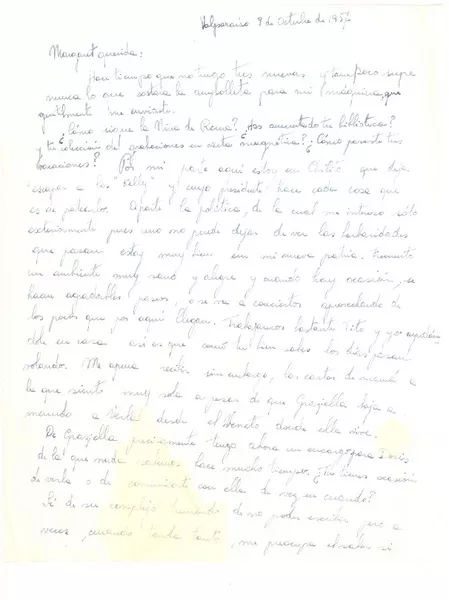 Valparaiso 9 de Octubre de 1957
Margaret querida:
Hace tiempo que no tengo tus nuevas y tampoco supe
nunca lo que costara la ampolleta para mi máquina, que
gentilmente me enviaste.
¿Cómo sigue la Niña de Roma? ¿Has aumentado tu biblioteca?
y tu colección de grabaciones en cinta magnética? ¿Cómo pasaste tus
vacaciones? Por mi parte aquí estoy en Chilito que deja
escapar a los "Kelly" y cuyo presidente hace cada cosa que
es de patearlo. Aparte la política, de la cual me intereso sólo
exteriormente pues uno no puede dejar de ver las barbaridades
que pasan estoy muy bien en mi nueva patria. Frecuento
un ambiente muy sano y alegre y cuando hay ocasión, se
hacen agradables paseos, o se va a conciertos aprovechando de
los pocos que por aquí llegan. Trabajamos bastante Tito y yo
en casa así es que como tú bien sabes los días pasan
volando. Me apena recibir sin embargo, las cartas de mamá a
la que siento muy sola a pesar de que Graziella baja a
menudo a verla desde el Veneto donde ella vive.
De Graziella precisamente tengo ahora un encargo para Doris
de la que nada sabemos hace mucho tiempo. ¿Tú tienes ocasión
de verla o de comunicarte con ella de vez en cuando?
Sé de su complejo tremendo de no poder escribir pero a
veces, cuando tarda tanto, me preocupa el saber si